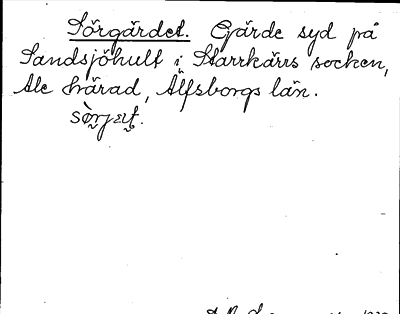 Sörgärdet. Gärde syd på
Sandsjöhult i Starrkärrs socken,
Ale härad, Älfsborgs län.